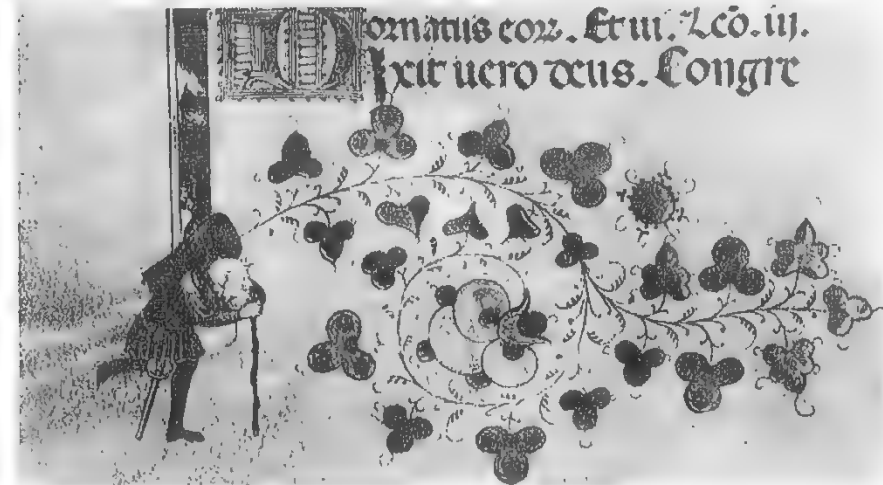 Dornatus eoꝝ. Et iii. Lcō. iij.
Dixit uero deus. Congre